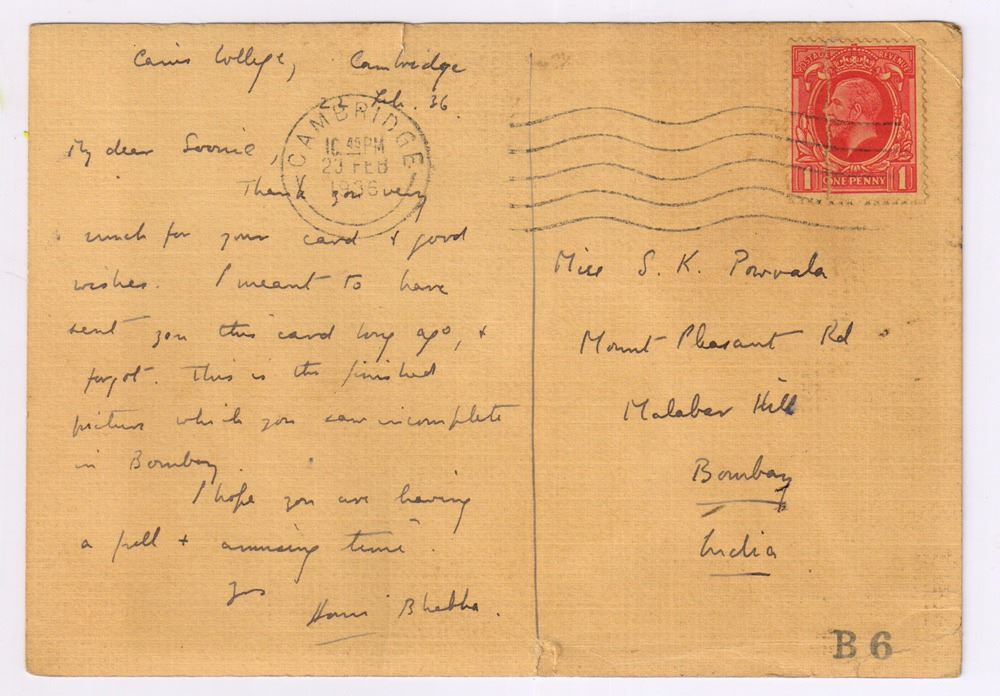 Caius College, Cambridge
22 Feb. 36.
My dear Soonie,
Thank you very
much for your card & good
wishes. I meant to have
sent you this card long ago, &
forgot. This is the finished
picture which you saw incomplete
in Bombay.
I hope you are having
a full & amusing time.
Yrs
Homi Bhabha.
CAMBRIDGE
10 45 PM
23 FEB
1936
POSTAGE REVENUE
1 ONE PENNY 1
Miss S. K. Powvala
Mount Pleasant Rd
Malabar Hill
Bombay
India
B 6